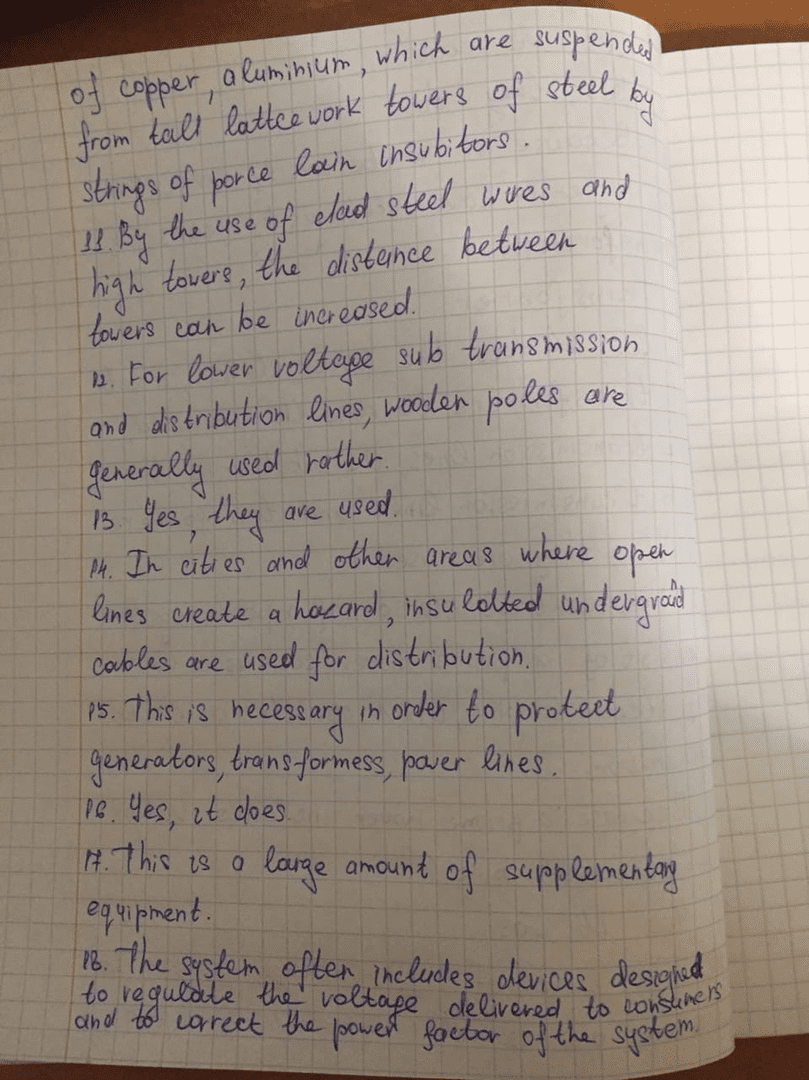 of copper, aluminium, which are suspended
from tall lattcework towers of steel by
strings of porce lain insubitors.
11. By the use of clad steel wires and
high towers, the distance between
towers can be increased.
12. For lower voltage sub transmission
and distribution lines, wooden poles are
generally used rather.
13. Yes, they are used.
14. In cities and other areas where open
lines create a hazard, insulatted undergraund
cables are used for distribution.
15. This is necessary in order to protect
generators, transformess, power lines.
16. Yes, it does.
17. This is a large amount of supplementary
equipment.
18. The system often includes devices designed
to regulate the voltage delivered to consumers
and to correct the power factor of the system.